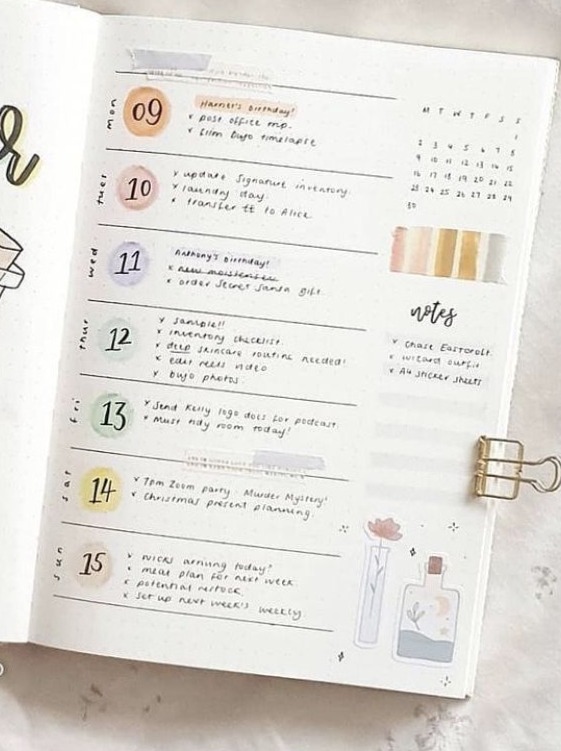 r
mon
09
Harriet's Birthday!
x post office trip.
x film bujo timelapse
tues
10
x update signature inventory.
x laundry day.
x transfer ££ to Alice
wed
11
Anthony's birthday!
x new moisturiser
x order secret santa gift.
thur
12
x sample!!
x inventory checklist.
x deep skincare routine needed!
x edit reels video
x bujo photos
fri
13
x Send Kelly logo docs for podcast
x Must tidy room today!
sat
14
x 7pm Zoom party. Murder Mystery!
x Christmas present planning.
sun
15
x wicks arriving today?
x meal plan for next week.
x potential restock.
x set up next week's weekly
M T W T F S S
1
2 3 4 5 6 7 8
9 10 11 12 13 14 15
16 17 18 19 20 21 22
23 24 25 26 27 28 29
30
notes
x chase
x wizard outfit
x A4 sticker sheets